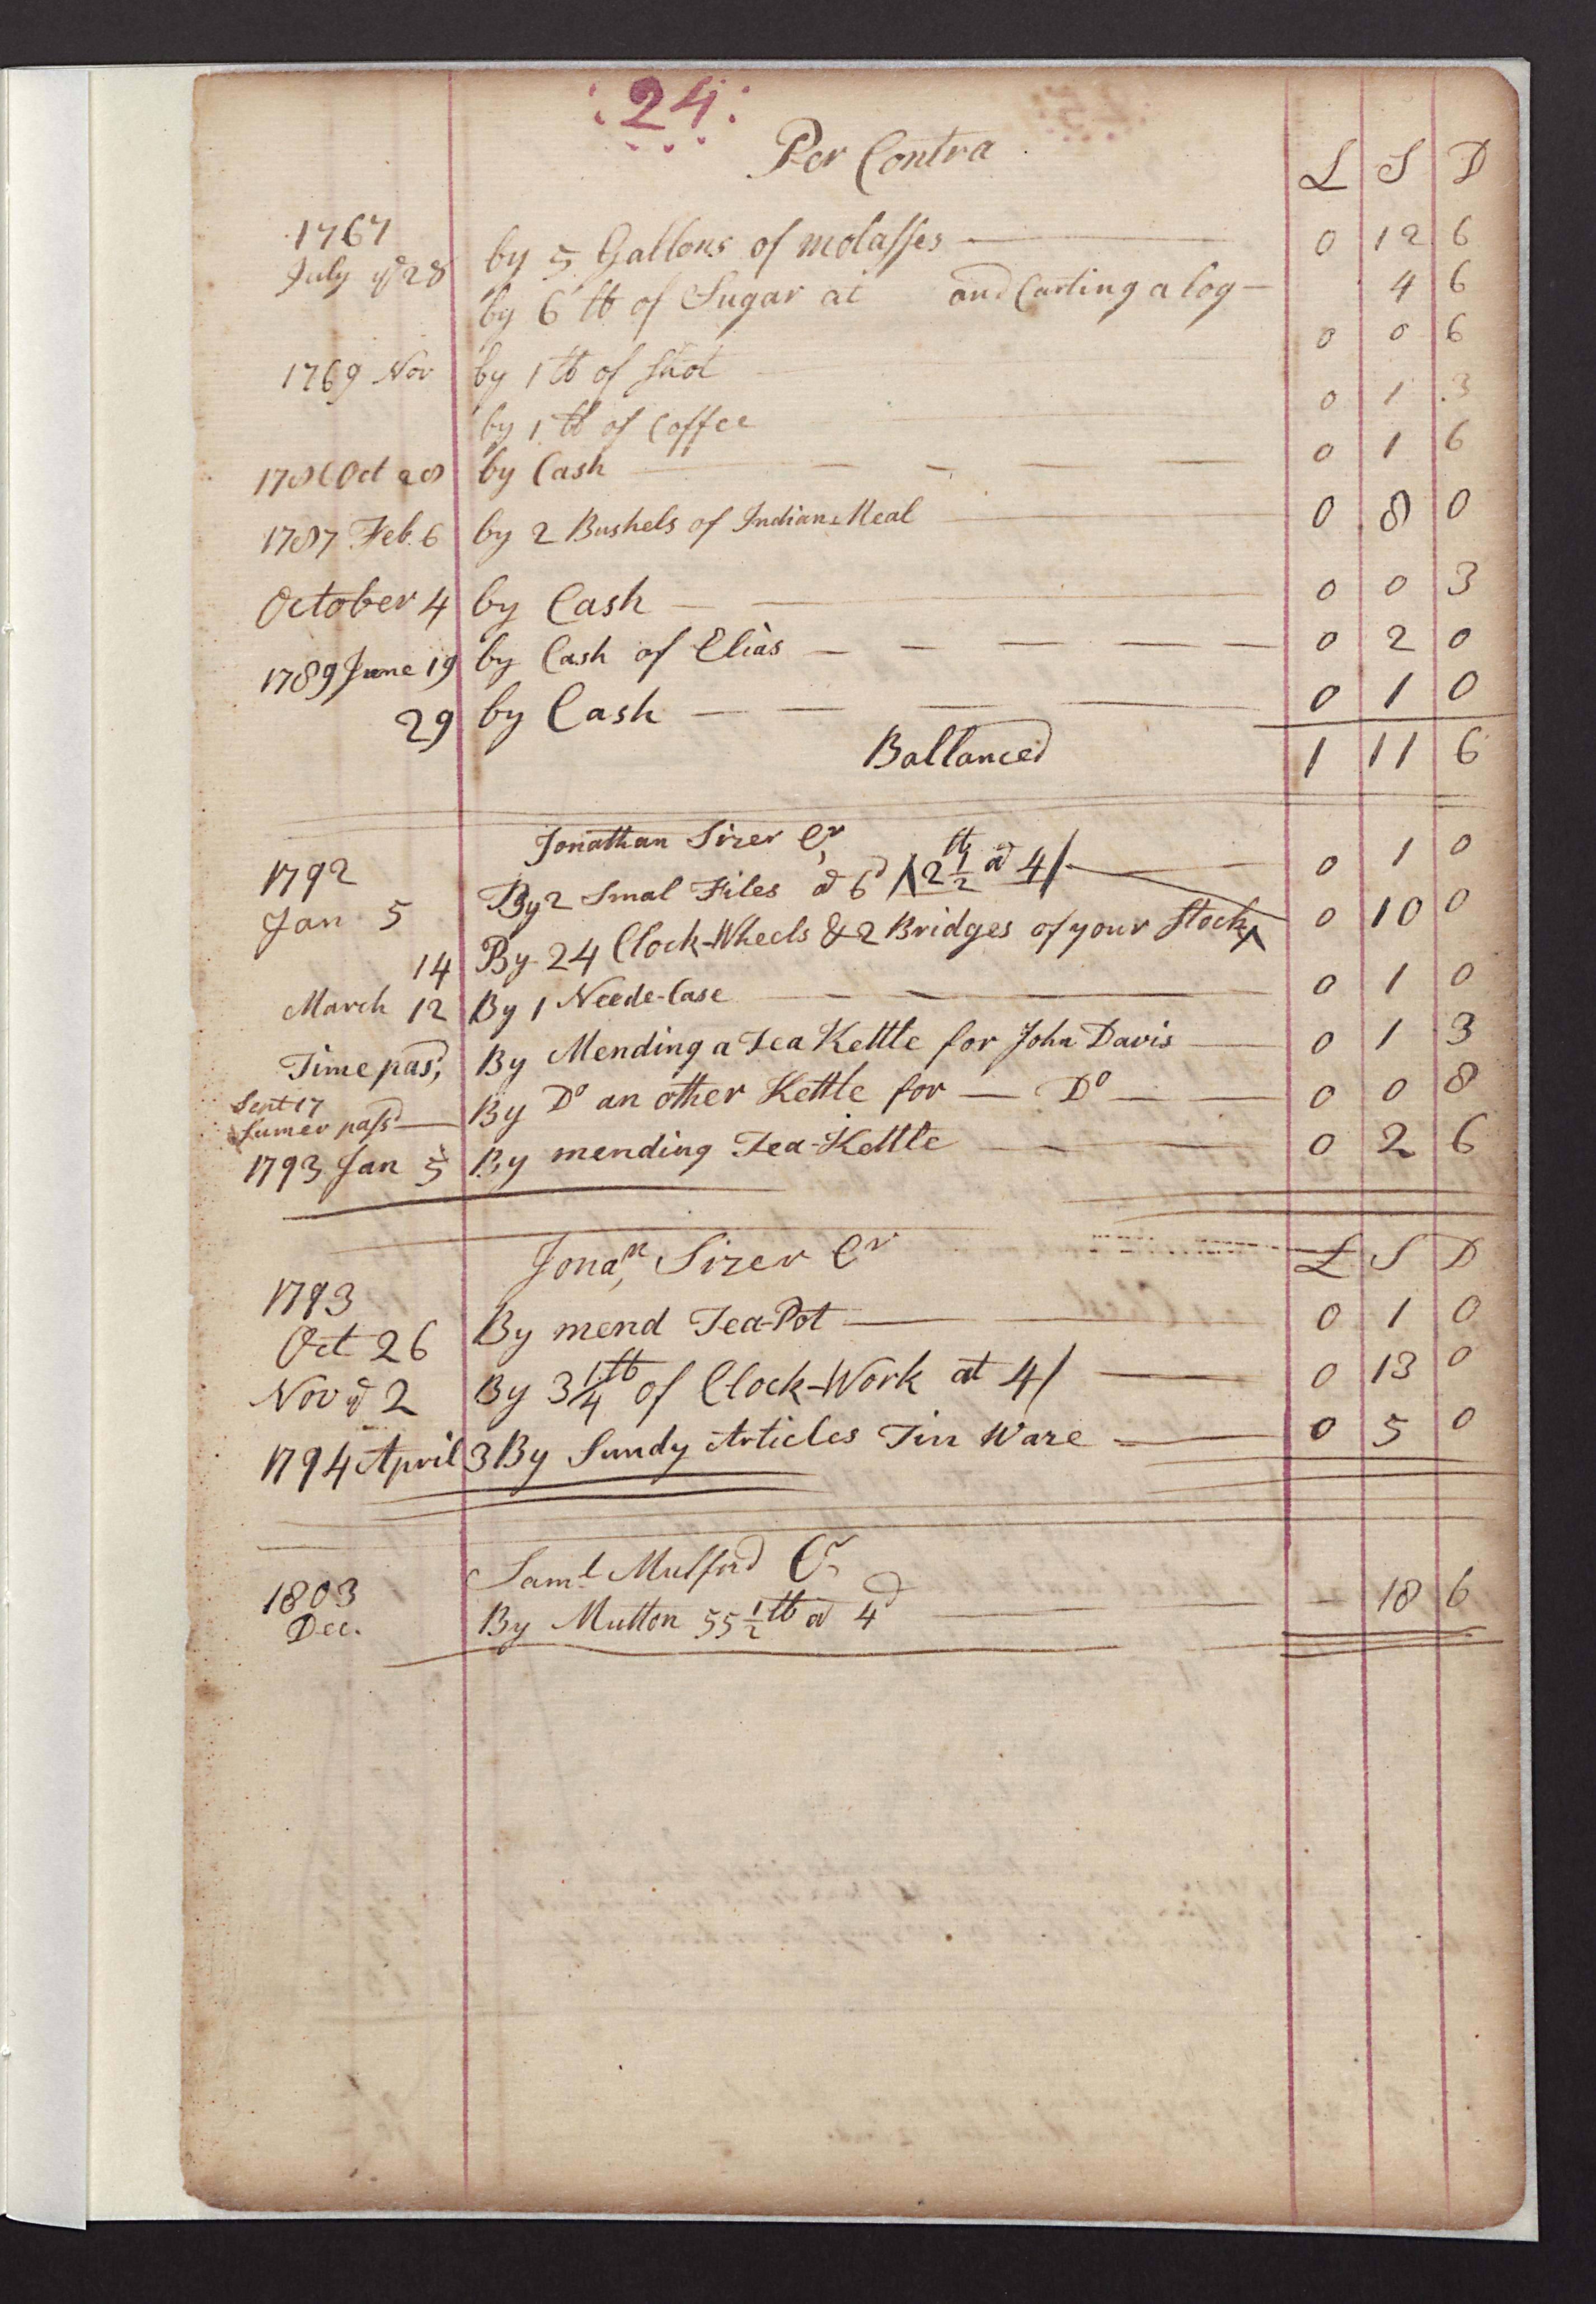 :24:
Per Contra
L S D
1767
July ye 28 by 5 Gallons of molasses — 0 12 6
by 6 lb of Sugar at and Carting a log — 4 6
1769 Nov by 1 lb of Shot 0 0 6
by 1 lb of Coffee 0 1 3
1786 Oct 28 by Cash — 0 1 6
1787 Feb. 6 by 2 Bushels of Indian Meal — 0 8 0
October 4 by Cash — 0 0 3
1789 June 19 by Cash of Elias — 0 2 0
29 by Cash — 0 1 0
Ballanced 1 11 6
Jonathan Sizer Cr
1792
Jan 5 By 2 Smal Files @ 6d 0 1 0
/\ 2 1/2 lb @ 4/
14 By 24 Clock-Wheels & 2 Bridges of your Stock 0 10 0
March 12 By 1 Neede-Case — 0 1 0
Time pasd, By Mending a Tea Kettle for John Davis — 0 1 3
Sept 17
Sumer passd — By Do an other Kettle for — Do — 0 0 8
1793 Jan 5 By mending Tea-Kettle — 0 2 6
Jonan, Sizer Cr L S D
1793
Oct 26 By mend Tea-Pot — 0 1 0
Nov ye 2 By 3 1/4 lb of Clock-Work at 4/ — 0 13 0
1794 April 3 By Sundy Articles Tin Ware — 0 5 0
Saml Mulford Cr
1803
Dec. By Mutton 55 1/2 lb @ 4d — 18 6